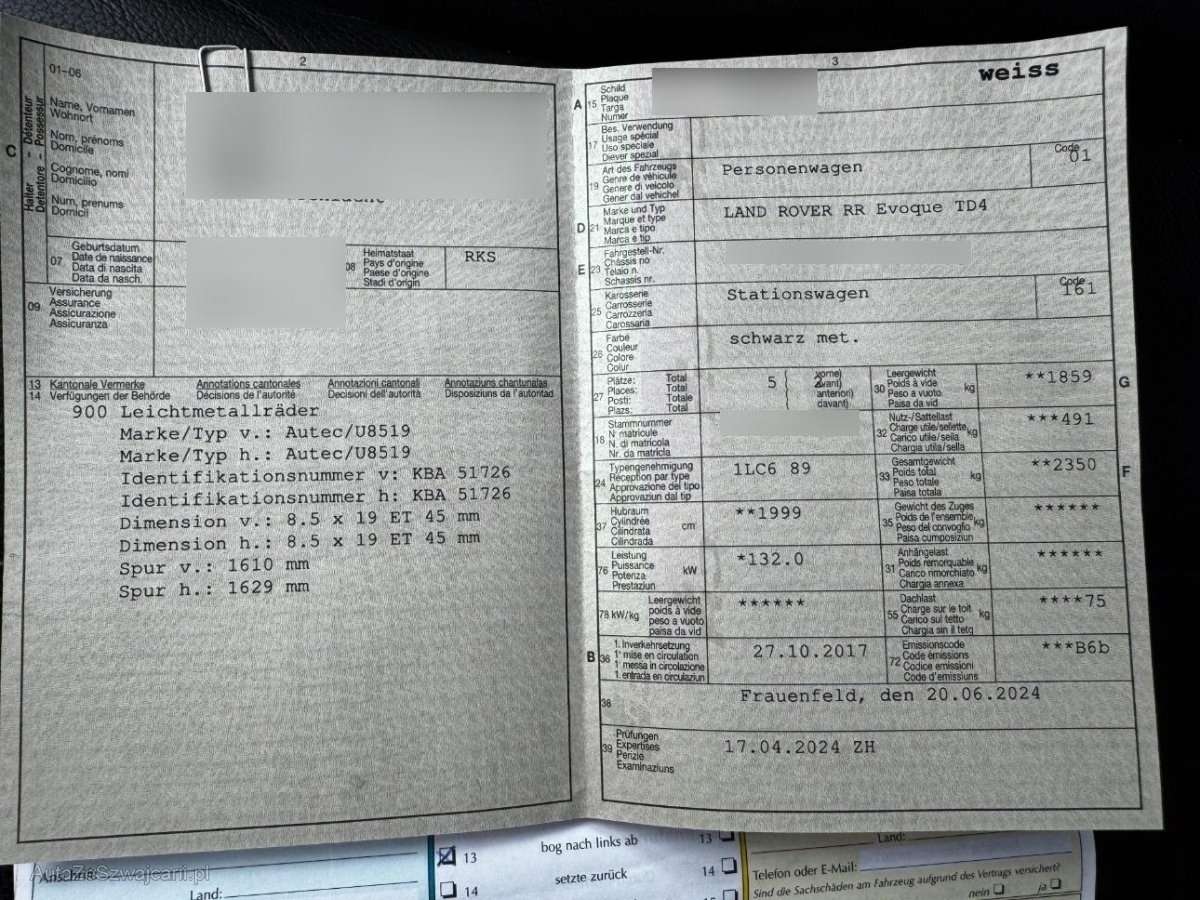 2
01-06
Halter - Détenteur
Detentore - Possessur
C
Name, Vornamen
Wohnort
Nom, prénoms
Domicile
Cognome, nomi
Domicilio
Num, prenums
Domicil
07
Geburtsdatum
Date de naissance
Data di nascita
Data da nasch.
08
Heimatstaat
Pays d'origine
Paese d'origine
Stadi d'origin
RKS
09
Versicherung
Assurance
Assicurazione
Assicuranza
13 Kantonale Vermerke Annotations cantonales Annotazioni cantonali Annotaziuns chantunalas
14 Verfügungen der Behörde Décisions de l'autorité Decisioni dell'autorità Disposiziuns da l'autoritad
900 Leichtmetallräder
Marke/Typ v.: Autec/U8519
Marke/Typ h.: Autec/U8519
Identifikationsnummer v: KBA 51726
Identifikationsnummer h: KBA 51726
Dimension v.: 8.5 x 19 ET 45 mm
Dimension h.: 8.5 x 19 ET 45 mm
Spur v.: 1610 mm
Spur h.: 1629 mm
3
weiss
A 15
Schild
Plaque
Targa
Numer
17
Bes. Verwendung
Usage spécial
Uso speciale
Diever spezial
19
Art des Fahrzeugs
Genre de véhicule
Genere di veicolo
Gener dal vehichel
Personenwagen
Code
01
D 21
Marke und Typ
Marque et type
Marca e tipo
Marca e tip
LAND ROVER RR Evoque TD4
E 23
Fahrgestell-Nr.
Châssis no
Telaio n.
Schassis nr.
25
Karosserie
Carrosserie
Carrozzeria
Carossaria
Stationswagen
Code
161
26
Farbe
Couleur
Colore
Colur
schwarz met.
27
Plätze: Total
Places: Total
Posti: Totale
Plazs: Total
5
vorne)
avant)
anteriori)
davant)
30
Leergewicht
Poids à vide
Peso a vuoto
Paisa da vid
kg
**1859
G
18
Stammnummer
N° matricule
N. di matricola
Nr. da matricla
32
Nutz-/Sattellast
Charge utile/sellette
Carico utile/sella
Chargia utila/sella
kg
***491
24
Typengenehmigung
Réception par type
Approvazione del tipo
Approvaziun dal tip
1LC6 89
33
Gesamtgewicht
Poids total
Peso totale
Paisa totala
kg
**2350
F
37
Hubraum
Cylindrée
Cilindrata
Cilindrada
cm³
**1999
35
Gewicht des Zuges
Poids de l'ensemble
Peso del convoglio
Paisa cumposiziun
kg
******
76
Leistung
Puissance
Potenza
Prestaziun
kW
*132.0
31
Anhängelast
Poids remorquable
Carico rimorchiato
Chargia annexa
kg
******
78 kW/kg
Leergewicht
poids à vide
peso a vuoto
paisa da vid
******
55
Dachlast
Charge sur le toit
Carico sul tetto
Chargia sin il tetg
kg
****75
B 36
1. Inverkehrsetzung
1re mise en circulation
1a messa in circolazione
1. entrada en circulaziun
27.10.2017
72
Emissionscode
Code émissions
Codice emissioni
Code d'emissiuns
***B6b
38
Frauenfeld, den 20.06.2024
39
Prüfungen
Expertises
Perizie
Examinaziuns
17.04.2024 ZH
AutoZeSzwajcarii.pl
Anschrift
Land:
13 bog nach links ab 13
14 setzte zurück 14
Land:
Telefon oder E-Mail:
Sind die Sachschäden am Fahrzeug aufgrund des Vertrags versichert?
nein ja